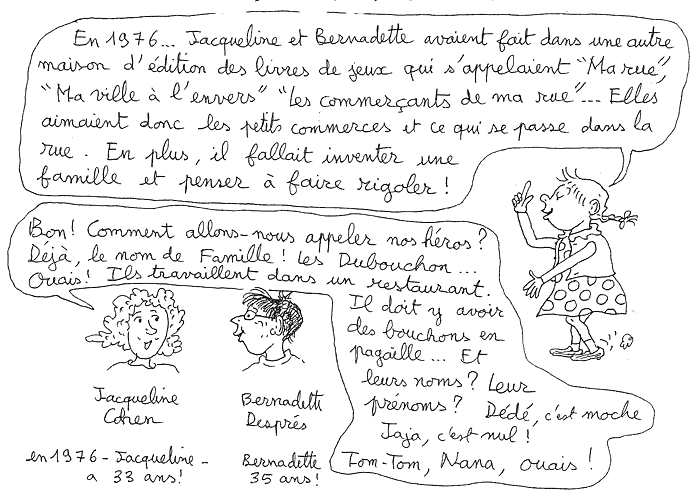 En 1976... Jacqueline et Bernadette avaient fait dans une autre
maison d'édition des livres de jeux qui s'appelaient "Ma rue",
"Ma ville à l'envers" "Les commerçants de ma rue"... Elles
aimaient donc les petits commerces et ce qui se passe dans la
rue. En plus, il fallait inventer une
famille et penser à faire rigoler !
Bon! Comment allons-nous appeler nos héros ?
Déjà, le nom de Famille ! Les Dubouchon...
Ouais! Ils travaillent dans un restaurant.
Il doit y avoir
des bouchons en
pagaïlle... Et
leurs noms? Leur
prénoms? Dédé, c'est moche
Jaja, c'est nul !
Tom-Tom, Nana, ouais !
Jacqueline
Cohen
en 1976 - Jacqueline -
a 33 ans!
Bernadette
Després
Bernadette
35 ans!